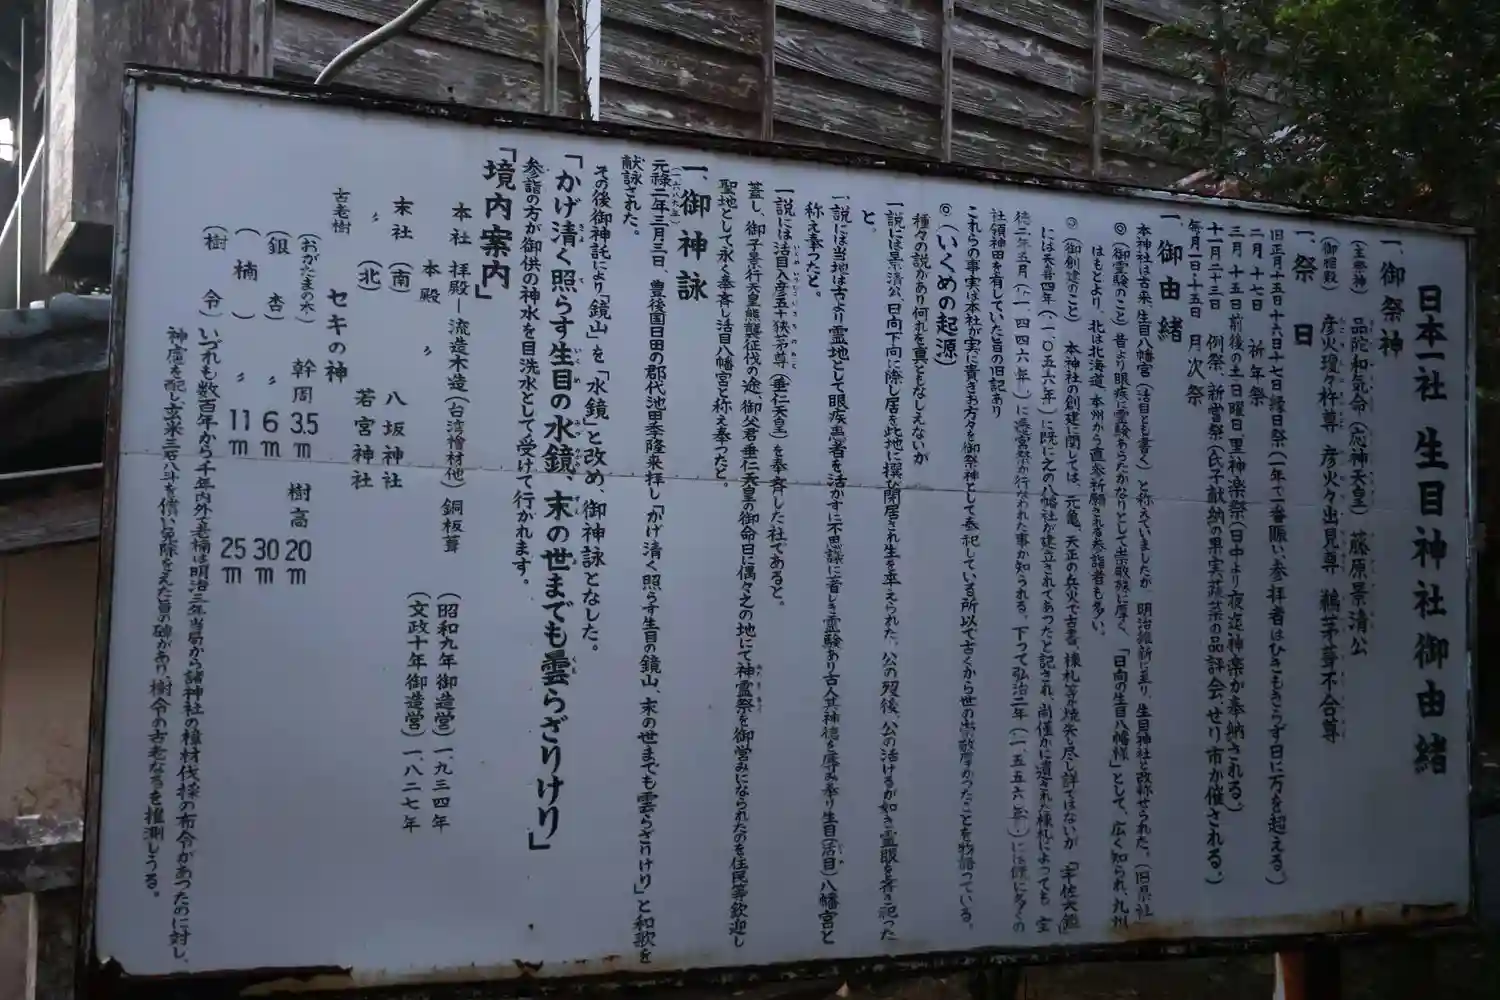 日本一社 生目神社御由緒
一、御祭神
(主祭神) 品陀和気命(応神天皇) 藤原景清公
(御相殿) 彦火瓊々杵尊 彦火々出見尊 鵜茅葺不合尊
一、祭 日
旧正月十五日十六日十七日縁日祭(一年で一番賑い、参拝者はひきもきらず日に万を超える。)
二月十七日 祈年祭
三月十五日前後の土日曜日 里神楽祭(日中より夜迄神楽が奉納される。)
十一月二十三日 例祭、新嘗祭(氏子献納の果実蔬菜の品評会、せり市が催される。)
毎月一日十五日 月次祭
一、御由緒
本神社は古来、生目八幡宮(活目とも書く)と称えていましたが、明治維新に至り、生目神社と改称せられた。(旧県社)
◎(御霊験のこと)昔より眼疾に霊験あらたかなりとして崇敬殊に厚く、「日向の生目八幡様」として、広く知られ、九州
はもとより、北は北海道、本州から直参祈願される参詣者も多い。
◎(御創建のこと) 本神社の創建に関しては、元亀、天正の兵火で古書、棟札等が焼失し尽し詳ではないが「宇佐大鑑」
には天喜四年(一、〇五六年)に既に之の八幡社が建立されてあったと記され、尚僅かに遺された棟札によっても、宝
徳二年五月(一、四四六年)に遷宮祭が行なわれた事が知られる。下って弘治二年(一、五五六年)には既に多くの
社領神田を有していた旨の旧記あり
これらの事実は本社が実に貴きお方々を御祭神として奉祀している所以で古くから世の崇敬厚かったことを物語っている。
◎(いくめの起源)
種々の説があり何れを真ともなしえないが
一説には景清公、日向下向に際し居を此地に撰び閑居され生を卒えられた。公の歿後、公の活けるが如き霊眼を斎き祀った
と。
一説には当地は古より霊地として眼疾患者を活かすに不思議に著しき霊験あり古人其神徳を尊み奉り生目(活目)八幡宮と
称え奉つたと。
一説には活目入彦五十狭茅尊(垂仁天皇)を奉斉した社であると。
蓋し、御子景行天皇熊襲征伐の途、御父君垂仁天皇の御命日に偶々之の地にて神霊祭を御営みになられたのを住民等歓迎し
聖地として永く奉斉し活目八幡宮と称え奉つたと。
一、御神詠
(一六八九年)
元禄二年三月三日、豊後国日田の郡代池田季隆来拝し「かげ清く照らす生目の鏡山、末の世までも雲らざりけり」と和歌を
献詠された。
その後御神託により「鏡山」を「水鏡」と改め、御神詠となした。
「かげ清く照らす生目の水鏡、末の世までも曇らざりけり」
参詣の方が御供の神水を目洗水として受けて行かれます。
「境内案内」
本社 拝殿―流造木造(台湾檜材他) 銅板葺 (昭和九年御造営)一、九三四年
本殿 〃 (文政十年御造営)一、八二七年
末社 (南) 八坂神社
〃 (北) 若宮神社
古老樹 セキの神
(おがたまの木) 幹周 3.5m 樹高 20m
(銀杏) 〃 6m 30m
(楠) 〃 11m 25m
(樹令) いずれも数百年から千年内外で老楠は明治三年当局から諸神社の樟材伐採の布令があつたのに対し、
神慮を配し玄米三石八斗を償い免除をえた旨の碑があり、樹令の古老なるを推測しうる。